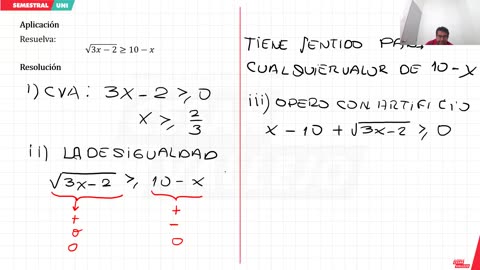 SEMESTRAL UNI
Aplicación
Resuelva:
√3x − 2 ≥ 10 − x
Resolución
i) CVA: 3x − 2 ≥ 0
x ≥ 2/3
ii) LA DESIGUALDAD
√3x−2 ≥ 10 − x
+ +
o −
0 0
TIENE SENTIDO PARA
CUALQUIER VALOR DE 10 − x
iii) OPERO CON ARTIFICIO
x − 10 + √3x−2 ≥ 0